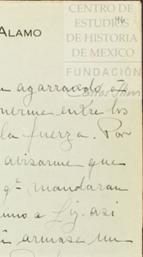 96
ALAMO
CENTRO DE
ESTUDIOS
DE HISTORIA
DE MEXICO
FUNDACIÓN
agarrando
nerme entre los
la fuerza. Por
avisarme que
qᵉ mandaran
uno a Liz. asi
armase un